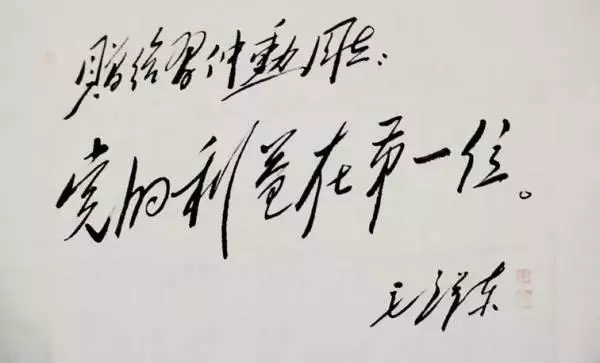 赠给習仲勳同志：
党的利益在第一位。
毛泽东